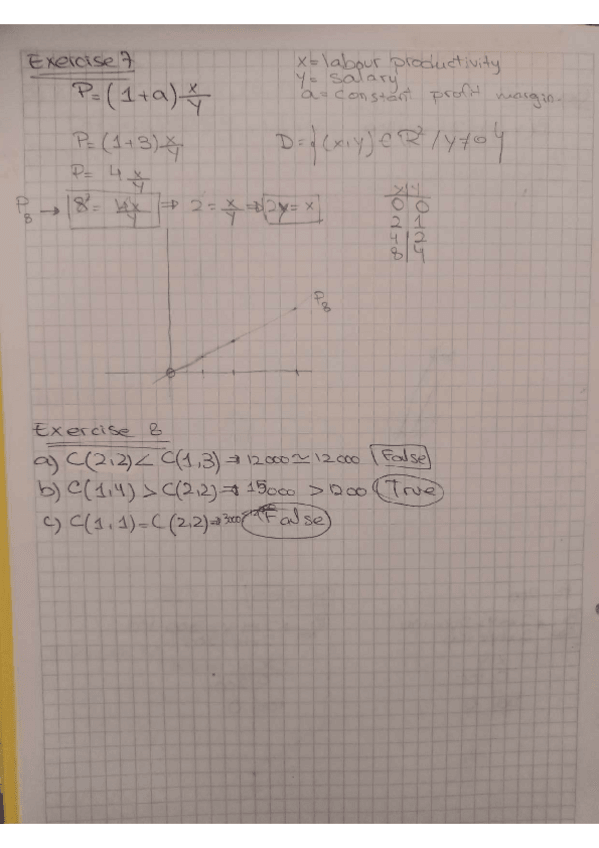 Exercise 7
x= labour productivity
y= salary
a= constant profit margin.
P=(1+a) x/y
P=(1+3) x/y
D={(x,y) ∈ R² / y≠0}
P= 4 x/y
P8 → 8 = 4x/y ⇒ 2 = x/y ⇒ 2y = x
x | y
0 | 0
2 | 1
4 | 2
8 | 4
P8
Exercise 8
a) C(2,2) < C(1,3) → 12000 ≃ 12000 False
b) C(1,4) > C(2,2) → 15000 > 1200 True
c) C(1,1) = C(2,2) → 3000 False